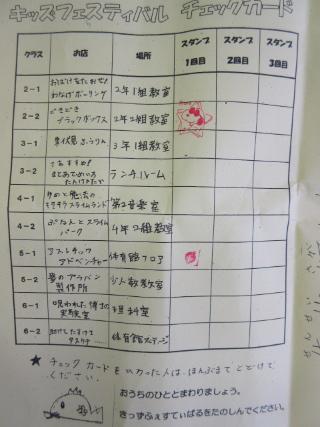 キッズフェスティバル チェックカード
クラス お店 場所 スタンプ1回目 スタンプ2回目 スタンプ3回目
2-1 おばけをたおせ! わなげボーリング 2年1組教室
2-2 どきどき ブラックボックス 2年2組教室
3-1 3年1組教室
3-2 ランチルーム
4-1 ゆめと魔法の スライムランド 第2音楽室
4-2 ぷよんとスライム パーク 4年2組教室
5-1 アスレチック アドベンチャー 体育館フロア
5-2 夢のプラバン 製作所 少人数教室
6-1 呪われた博士の 実験室 理科室
6-2 助けてたすけて 体育館ステージ
★ チェックカードを いった人は、ほんぶまで とどけて
ください。
おうちのひととまわりましょう。
きっずふぇすてぃばるをたのしんでください。